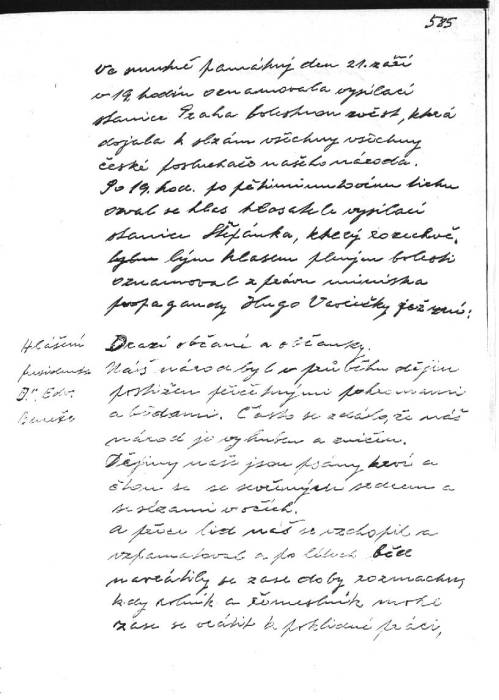 585
Ve smutně památný den 21. září
v 19. hodin oznamovala vysílací
stanice Praha bolestnou zvěst, která
dojala k slzám všechny všechny
české posluchače našeho národa.
Po 19. hod. po pětiminutovém tichu
ozval se hlas hlasatele vysílací
stanice Štěpánka, který rozechvě-
lým hlasem plným bolesti
oznamoval zprávu ministra
propagandy Hugo Vavrečky jež zní:
Hlášení
presidenta
Dr. Edv.
Beneše
Drazí občané a občanky.
Náš národ byl v průběhu dějin
postižen přečetnými pohromami
a bědami. Často se zdálo, že náš
národ je vyhuben a zničen.
Dějiny naše jsou psány krví a
čtou se se sevřeným srdcem a
se slzami v očích.
A přece lid náš se vzchopil a
vzpamatoval a po letech běd
navrátily se zase doby rozmachu,
kdy rolník a řemeslník mohl
zase se vrátit k poklidné práci,